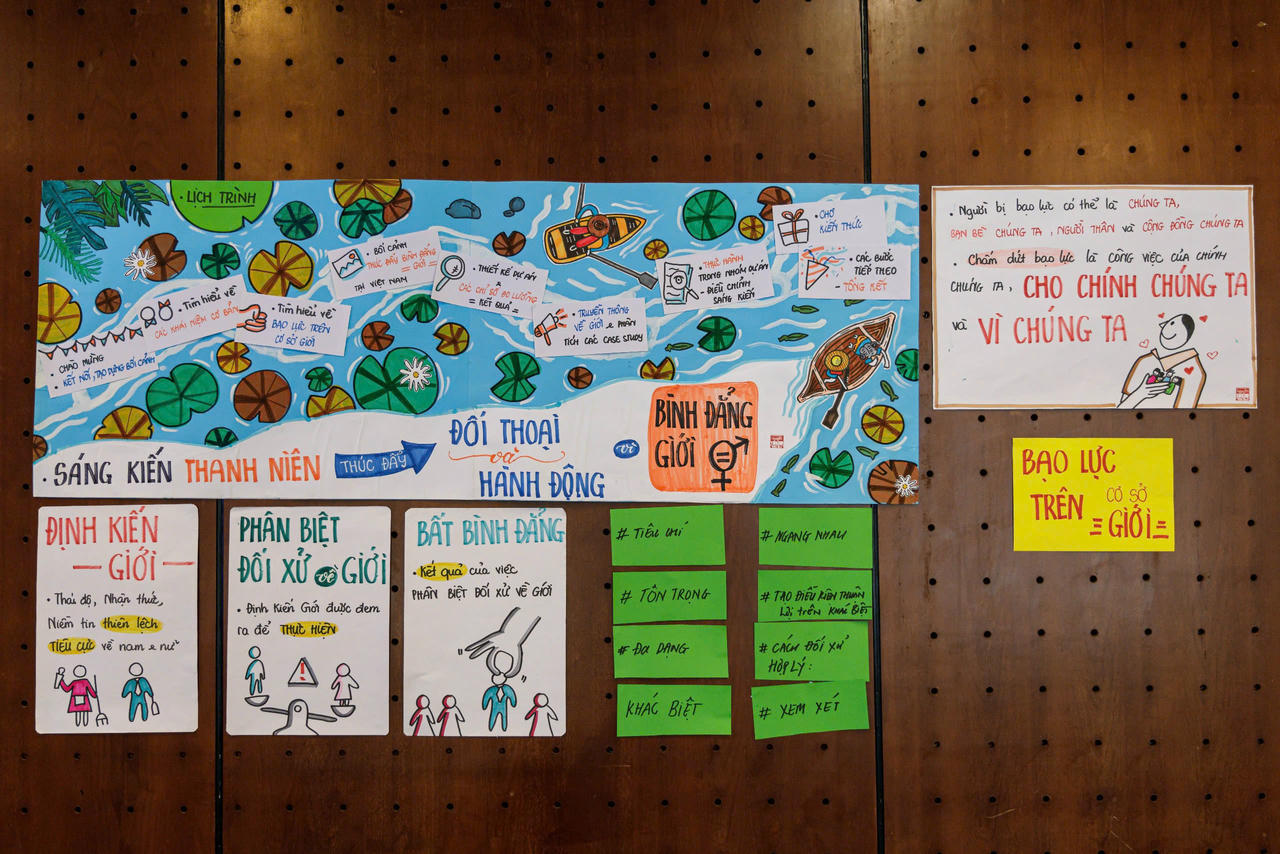 • LỊCH TRÌNH
CHÀO MỪNG
KẾT NỐI, TẠO DỰNG BỐI CẢNH
• Tìm hiểu về
CÁC KHÁI NIỆM CƠ BẢN
• Tìm hiểu về
BẠO LỰC TRÊN
CƠ SỞ GIỚI
• BỐI CẢNH
THÚC ĐẨY BÌNH ĐẲNG
= GIỚI =
TẠI VIỆT NAM
• THIẾT KẾ DỰ ÁN
&
CÁC CHỈ SỐ ĐO LƯỜNG
= KẾT QUẢ =
• TRUYỀN THÔNG
VỀ GIỚI & PHÂN
TÍCH CÁC CASE STUDY
• THỰC HÀNH
TRONG NHÓM DỰ ÁN
- ĐIỀU CHỈNH
SÁNG KIẾN
• CHỢ
KIẾN THỨC
• CÁC BƯỚC
TIẾP THEO
- TỔNG KẾT
• SÁNG KIẾN THANH NIÊN THÚC ĐẨY
ĐỐI THOẠI
và
HÀNH ĐỘNG
vì
BÌNH ĐẲNG
GIỚI
• Người bị bạo lực có thể là CHÚNG TA,
BẠN BÈ CHÚNG TA, NGƯỜI THÂN và CỘNG ĐỒNG CHÚNG TA
• Chấm dứt bạo lực là công việc của chính
CHÚNG TA, CHO CHÍNH CHÚNG TA
và VÌ CHÚNG TA
BẠO LỰC
TRÊN CƠ SỞ
= GIỚI =
ĐỊNH KIẾN
— GIỚI —
• Thái độ, Nhận thức,
Niềm tin thiên lệch
TIÊU CỰC về nam & nữ
PHÂN BIỆT
ĐỐI XỬ về GIỚI
• Định Kiến Giới được đem
ra để THỰC HIỆN
BẤT BÌNH ĐẲNG
• Kết quả của việc
PHÂN BIỆT ĐỐI XỬ VỀ GIỚI
# TIÊU CHÍ
# TÔN TRỌNG
# ĐA DẠNG
KHÁC BIỆT
# NGANG NHAU
# TẠO ĐIỀU KIỆN THUẬN
Lợi trên KHÁC BIỆT
# CÁCH ĐỐI XỬ
HỢP LÝ:
# XEM XÉT